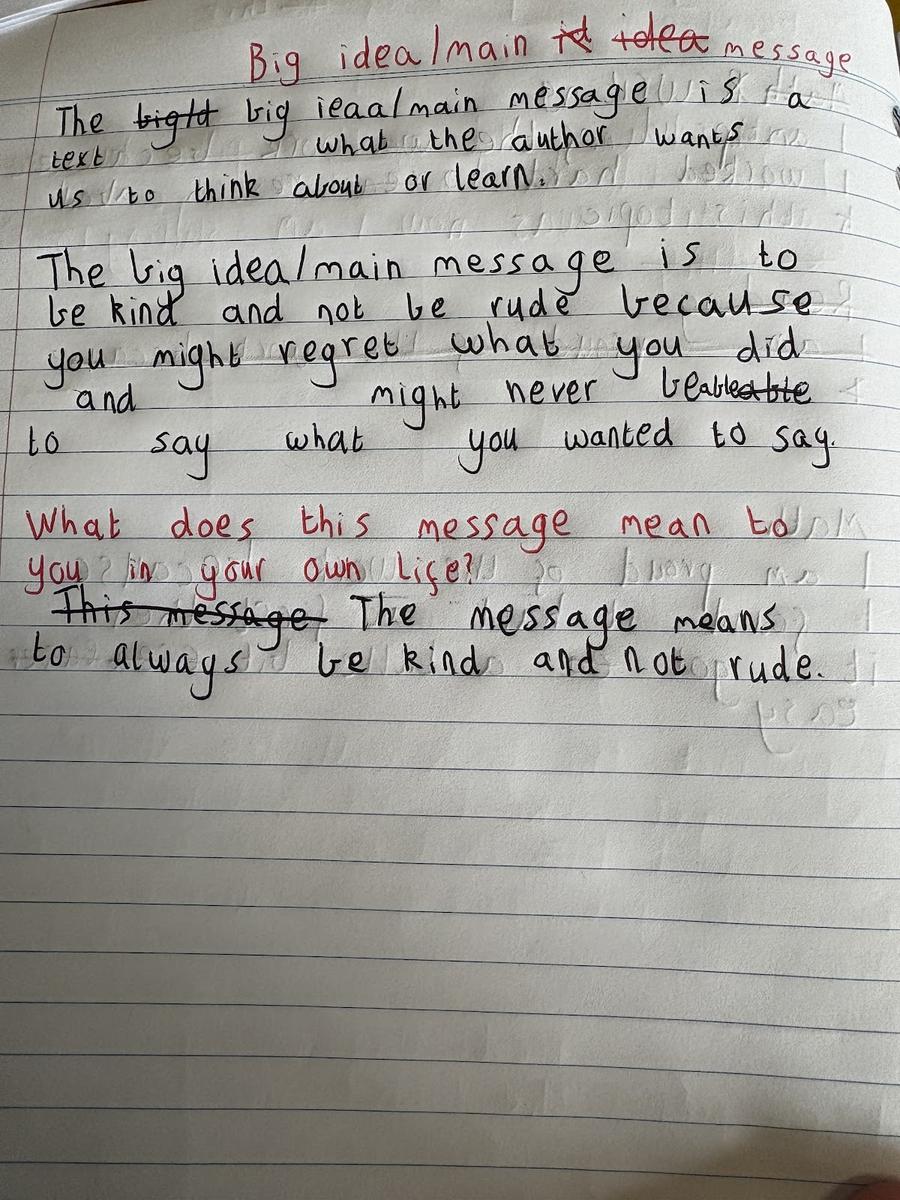 Big idea/main id idea message
The bigld big ieaa/main message is a
text what the author wants
us to think about or learn.
The big idea/main message is to
be kind and not be rude because
you might regret what you did
and might never beable able
to say what you wanted to say.
What does this message mean to
you in your own life?
This message The message means
to always be kind and not rude.